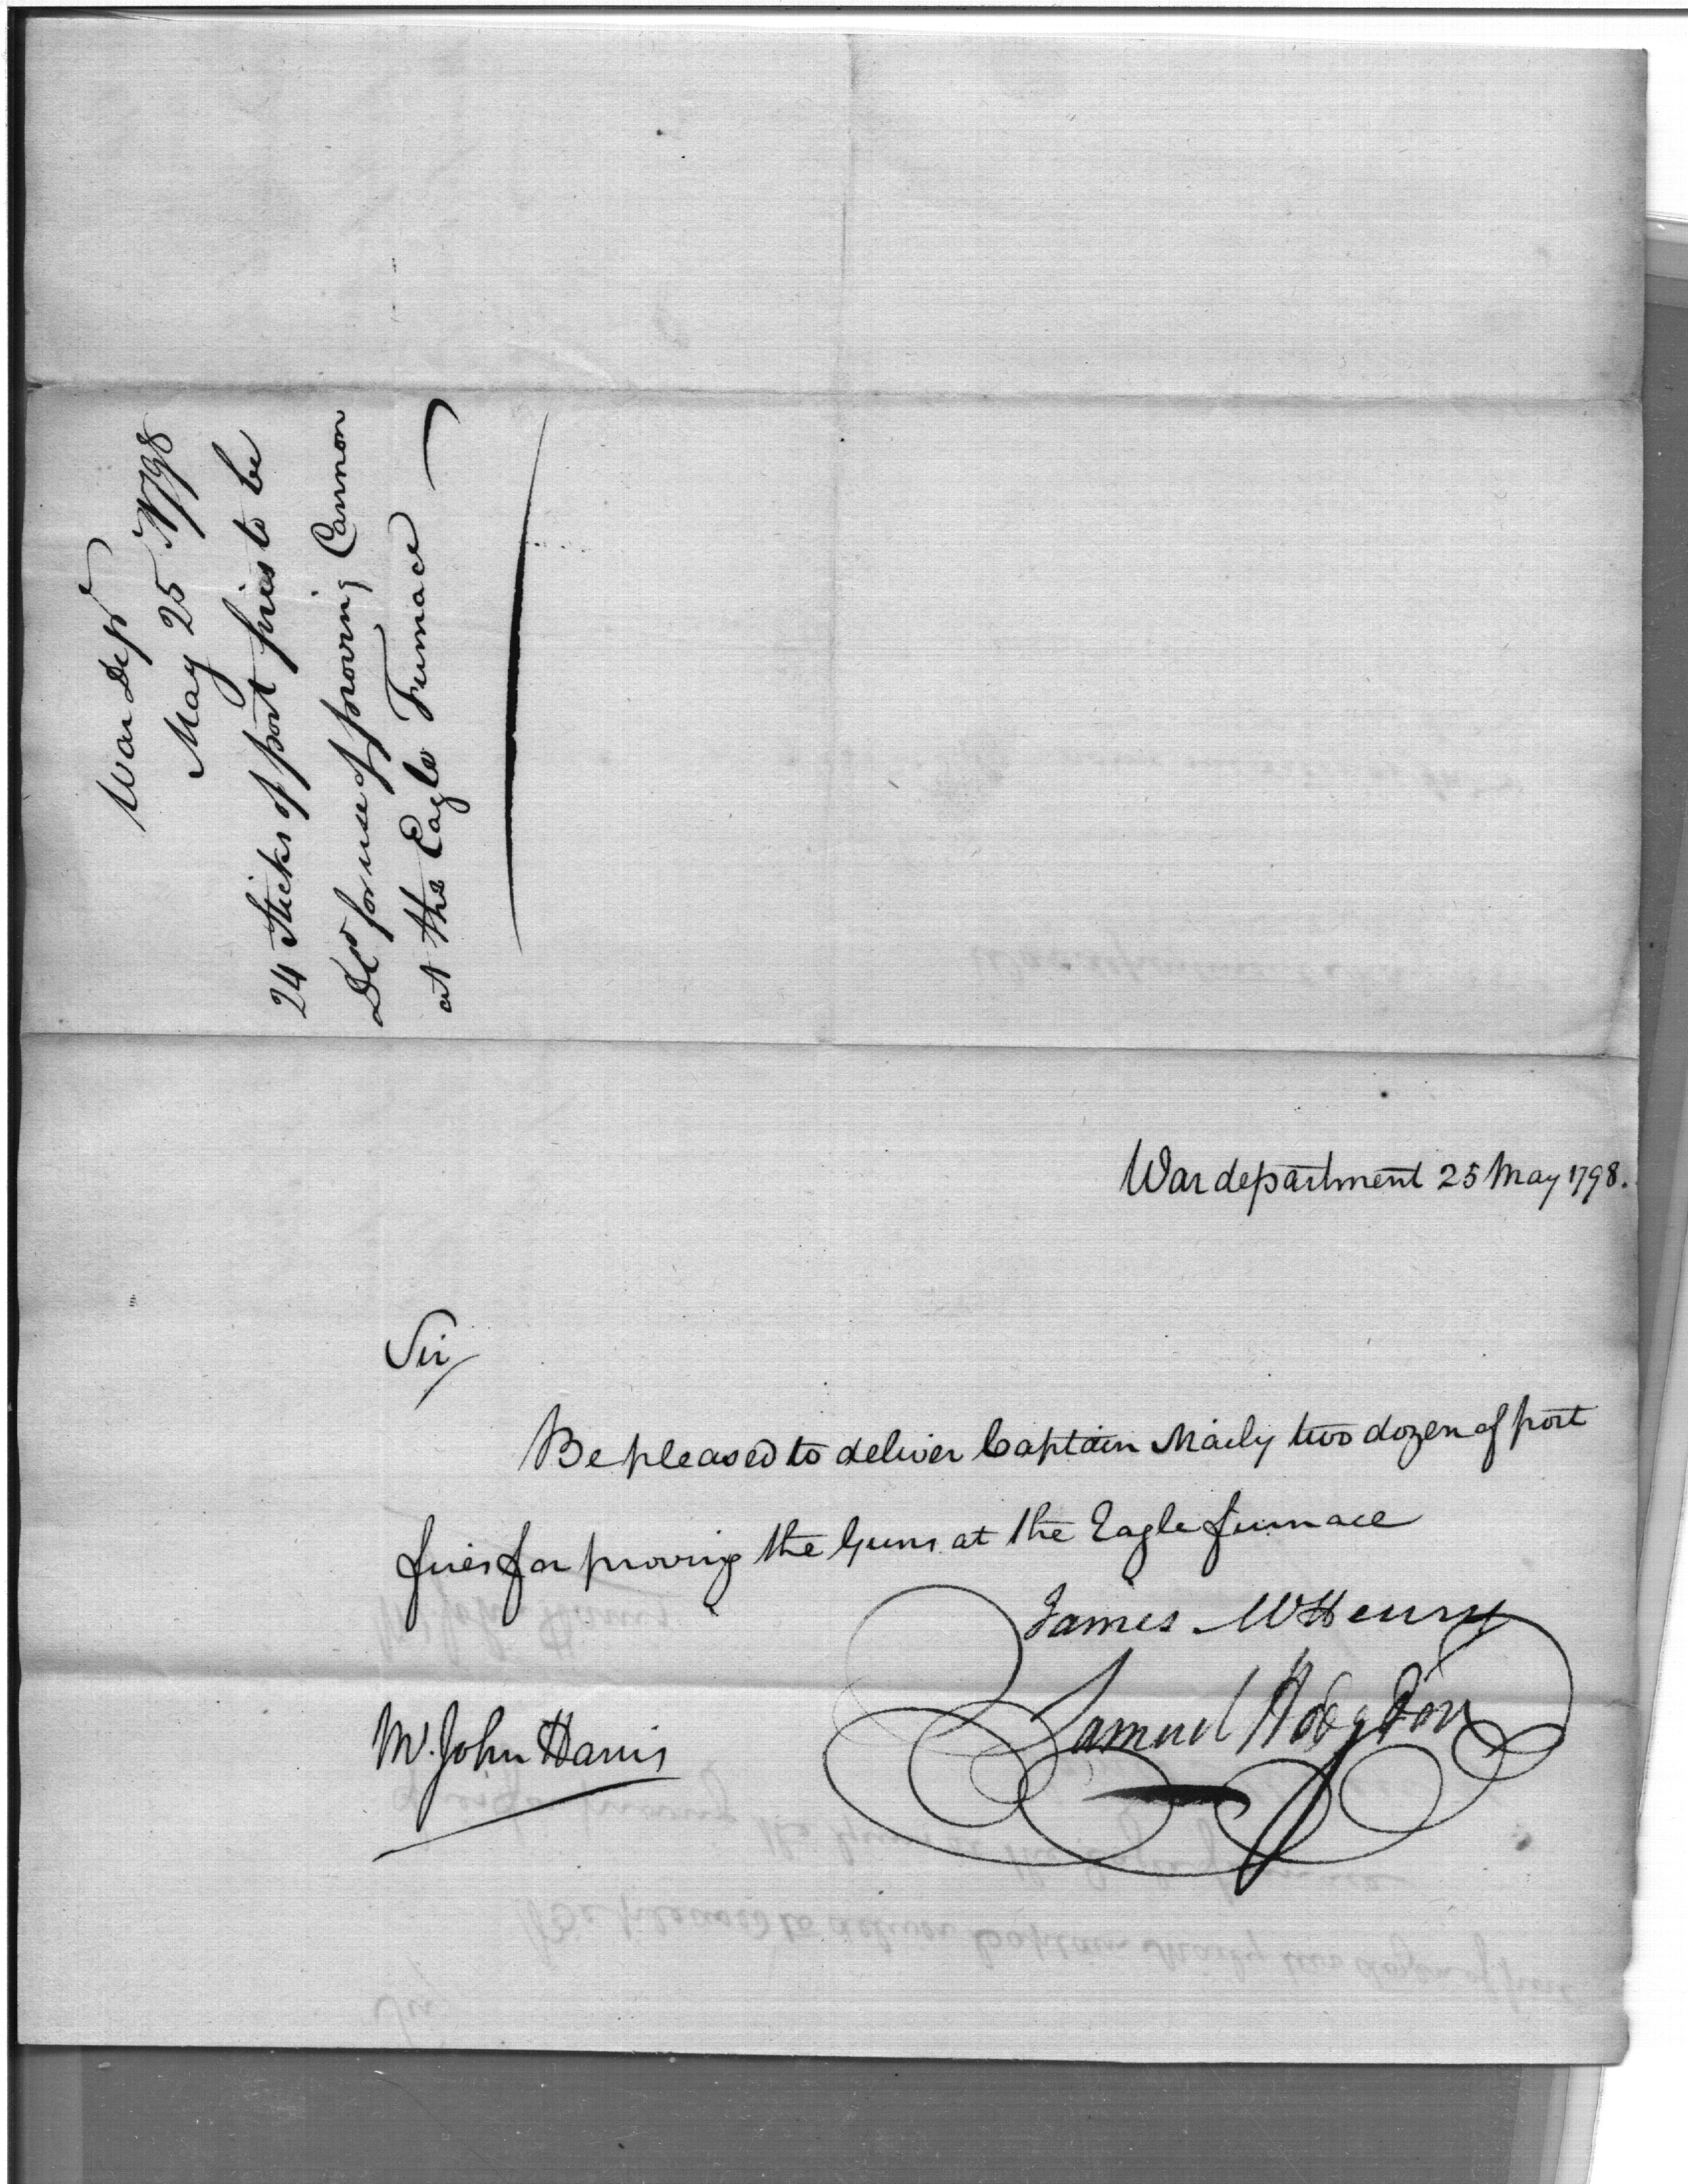 War Dept
May 25 1798
24 Sticks of port fires to be
Deld for use of proving Cannon
at the Eagle Furnace
War department 25 May 1798.
Sir
Be pleased to deliver Captain Maily two dozen of port
fires for proving the Guns at the Eagle furnace
James McHenry
Samuel Hodgdon
Mr. John Harris